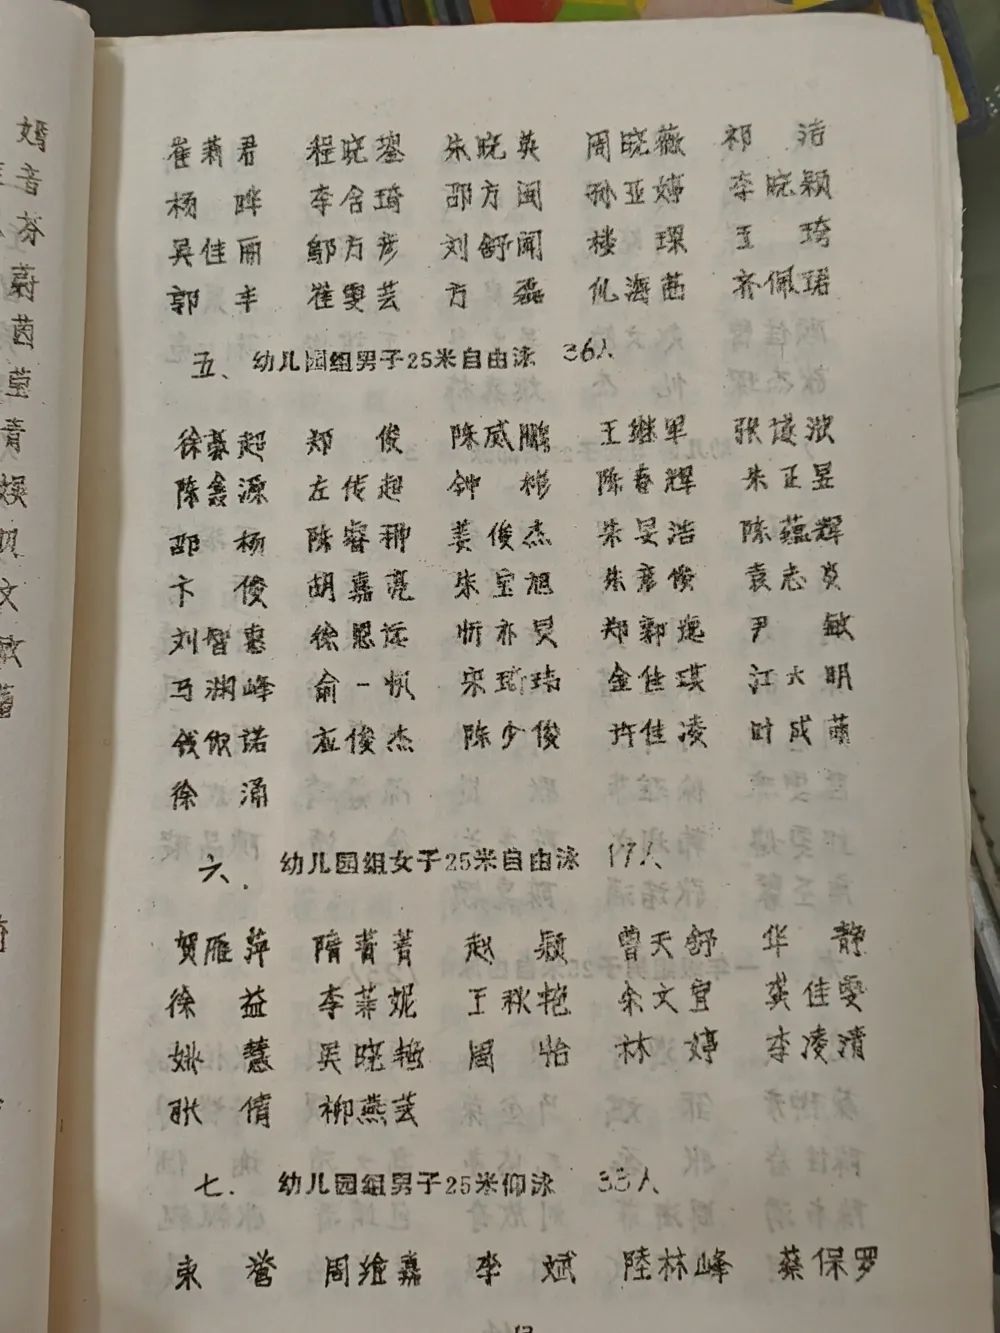 崔莉君 程晓鋆 朱晓英 周晓薇 祁洁
杨晔 李含琦 邵方闽 孙亚婷 李晓颖
吴佳丽 邬方彦 刘舒闻 楼琛 王琦
郭丰 崔雯芸 方磊 仇海茜 齐佩珺
五、幼儿园组男子25米自由泳 36人
徐超 郑俊 陈威鹏 王继军 张
陈鑫源 左传超 钟彬 陈春辉 朱正昱
邵杨 陈睿翀 姜俊杰 朱旻浩 陈蕴辉
卞俊 胡嘉亮 朱宝旭 朱彦俊 袁志炎
刘智惠 徐恩远 忻亦昊 郑郭 尹敏
马渊峰 俞一帆 宋琦玮 金佳琪 江大明
钱诺 应俊杰 陈少俊 许佳凌 时成萌
徐涌
六、幼儿园组女子25米自由泳 17人
贺雁萍 隋菁菁 赵颖 曾天舒 华静
徐益 李菲妮 王秋艳 余文宜 龚佳雯
姚慧 吴晓艳 周怡 林婷 李凌清
张倩 柳燕芸
七、幼儿园组男子25米仰泳 33人
束誉 周维嘉 李斌 陸林峰 蔡保罗
婿
音
芬
蔚
茵
莹
青
文
敏